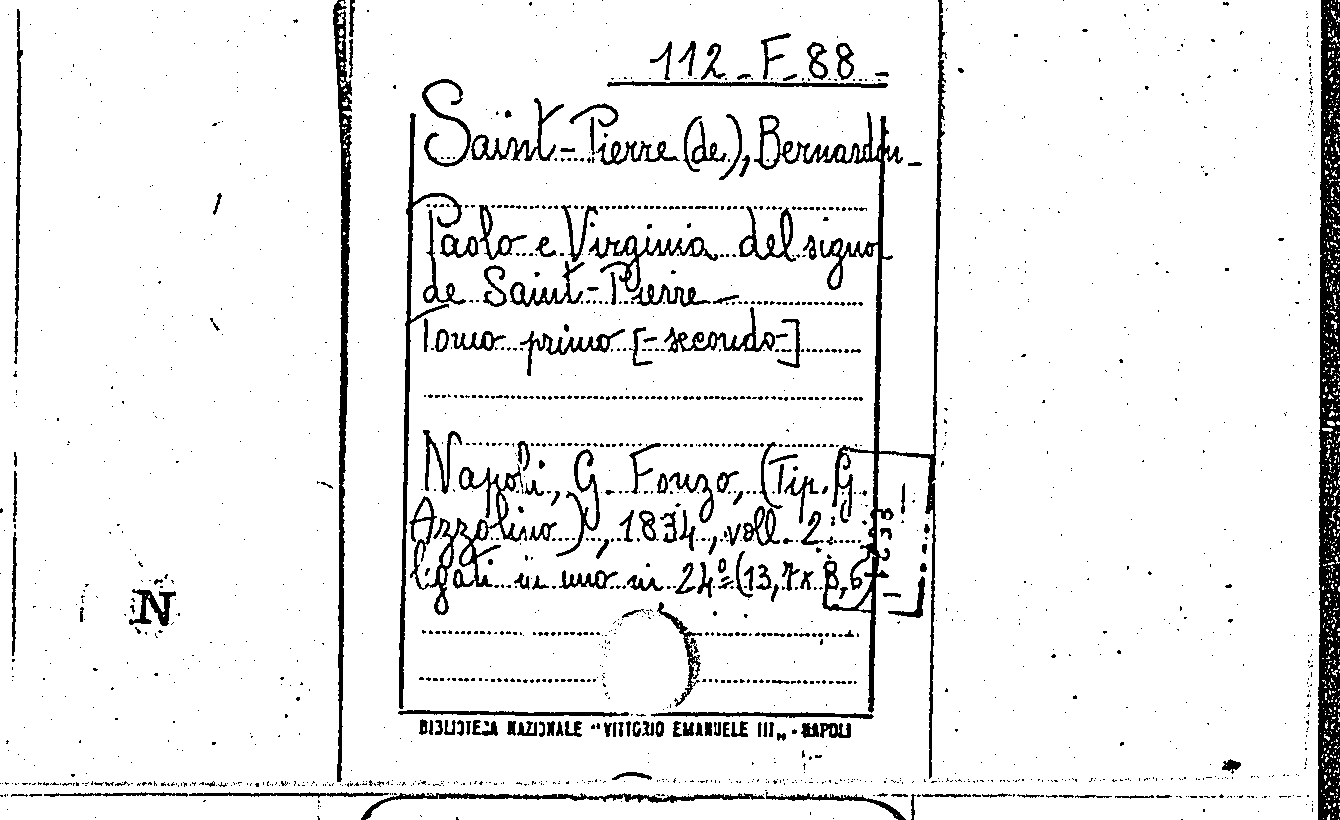 112-F-88-
Saint-Pierre (de), Bernardin-
Paolo e Virginia del signor
de Saint-Pierre-
Tomo primo [-secondo-]
Napoli, G. Fonzo, (Tip. G.
Azzolino), 1834, voll. 2:
ligati in uno in 24º (13,7x8,6)
N
BIBLIOTECA NAZIONALE "VITTORIO EMANUELE III„ - NAPOLI